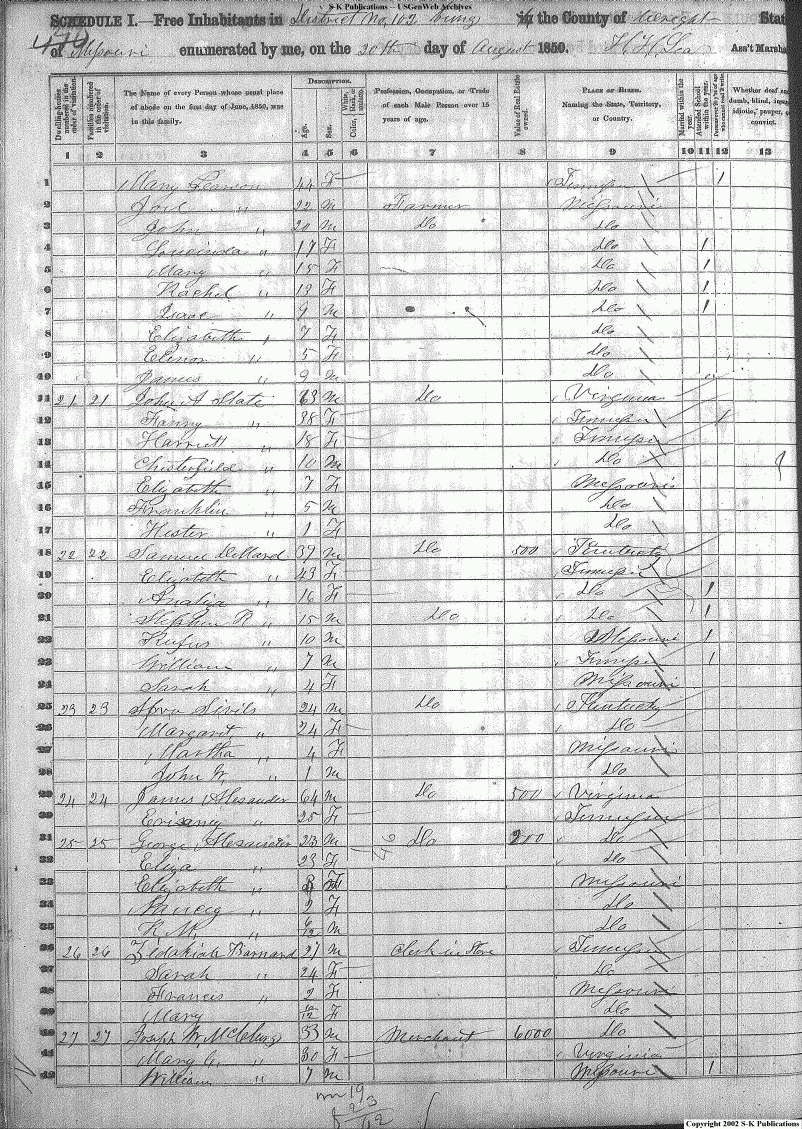 S-K Publications -- USGenWeb Archives
SCHEDULE I.—Free Inhabitants in District No. 102 being in the County of Wright State
474 of Missouri enumerated by me, on the 20th day of August 1850. Ass't Marsha
Dwelling-houses numbered in the order of visitation.
Families numbered in the order of visitation.
The Name of every Person whose usual place of abode on the first day of June, 1850, was in this family.
Description.
Age.
Sex.
Color, White, black, or mulatto.
Profession, Occupation, or Trade of each Male Person over 15 years of age.
Value of Real Estate owned.
Place of Birth. Naming the State, Territory, or Country.
Married within the year.
Attended School within the year.
Whether deaf and dumb, blind, insane, idiotic, pauper, or convict.
1 2 3 4 5 6 7 8 9 10 11 12 13
1 Mary 44 F Tennessee 1
2 Joel " 22 M Farmer Missouri
3 John " 20 M Do Do
4 Loucinda " 17 F Do 1
5 Mary " 15 F Do 1
6 Rachel " 13 F Do 1
7 Isaac " 9 M Do 1
8 Elizabeth " 7 F Do
9 Elinor " 5 F Do
10 James " 9 M Do
11 21 21 John A Slate 63 M Do Virginia
12 Fanny " 38 F Tennessee 1
13 Harriett " 18 F Tennessee
14 Chesterfield " 10 M Do
15 Elizabeth " 7 F Missouri
16 Franklin " 5 M Do
17 Hester " 1 F Do
18 22 22 Samuel 39 M Do 500 Kentucky
19 Elizabeth " 43 F Tennessee
20 " 16 F Do 1
21 Stephen R " 15 M Do Do 1
22 Rufus " 10 M Missouri 1
23 William " 7 M Tennessee 1
24 Sarah " 4 F Missouri
25 23 23 Sivils 24 M Do Kentucky
26 Margaret " 24 F Do
27 Martha " 4 F Missouri
28 John W " 1 M Do
29 24 24 James Alexander 64 M Do 500 Virginia
30 " 25 F Tennessee
31 25 25 George Alexander 23 M Do 200 Do
32 Eliza " 23 F Do
33 Elizabeth " F Missouri
34 Nancy " 2 F Do
35 R. M. " 6/12 M Do
36 26 26 Zidakiah Barnard 27 M Clerk in Store Tennessee
37 Sarah " 24 F Do
38 Francis " 2 F Missouri
39 Mary " F Do
40 27 27 Joseph W McClurg 33 M Merchant 6000 Do
41 Mary " 30 F Virginia
42 William " 7 M Missouri 1
Copyright 2002 S-K Publications